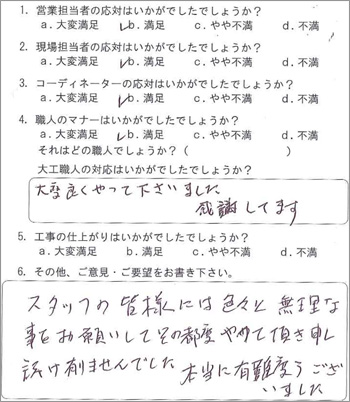 1. 営業担当者の応対はいかがでしたでしょうか?
a.大変満足 b.満足 c.やや不満 d.不満
2. 現場担当者の応対はいかがでしたでしょうか?
a.大変満足 b.満足 c.やや不満 d.不満
3. コーディネーターの応対はいかがでしたでしょうか?
a.大変満足 b.満足 c.やや不満 d.不満
4. 職人のマナーはいかがでしたでしょうか?
a.大変満足 b.満足 c.やや不満 d.不満
それはどの職人でしょうか?( )
大工職人の対応はいかがでしたでしょうか?
大変良くやって下さいました
感謝してます
5. 工事の仕上がりはいかがでしたでしょうか?
a.大変満足 b.満足 c.やや不満 d.不満
6. その他、ご意見・ご要望をお書き下さい。
スタッフの皆様には色々と無理な
事をお願いしてその都度やって頂き申
し訳け有ませんでした 本当に有難度うござ
いました